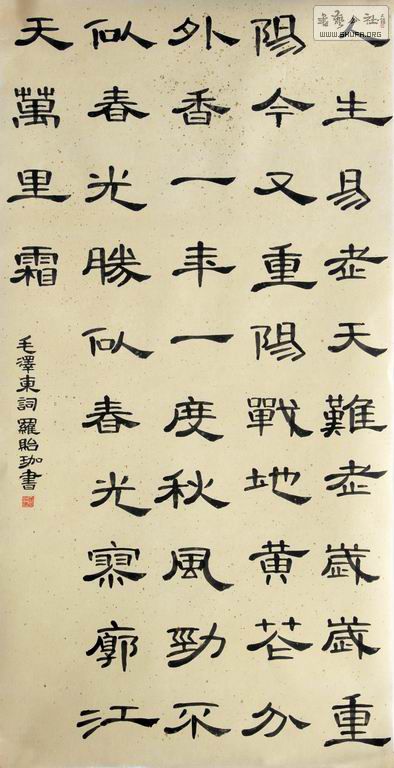 人生易老天難老歲歲重
陽今又重陽戰地黃花分
外香一年一度秋風勁不
似春光勝似春光寥廓江
天萬里霜
毛澤東詞羅貽珈書
書藝公社
WWW.SHUFA.ORG